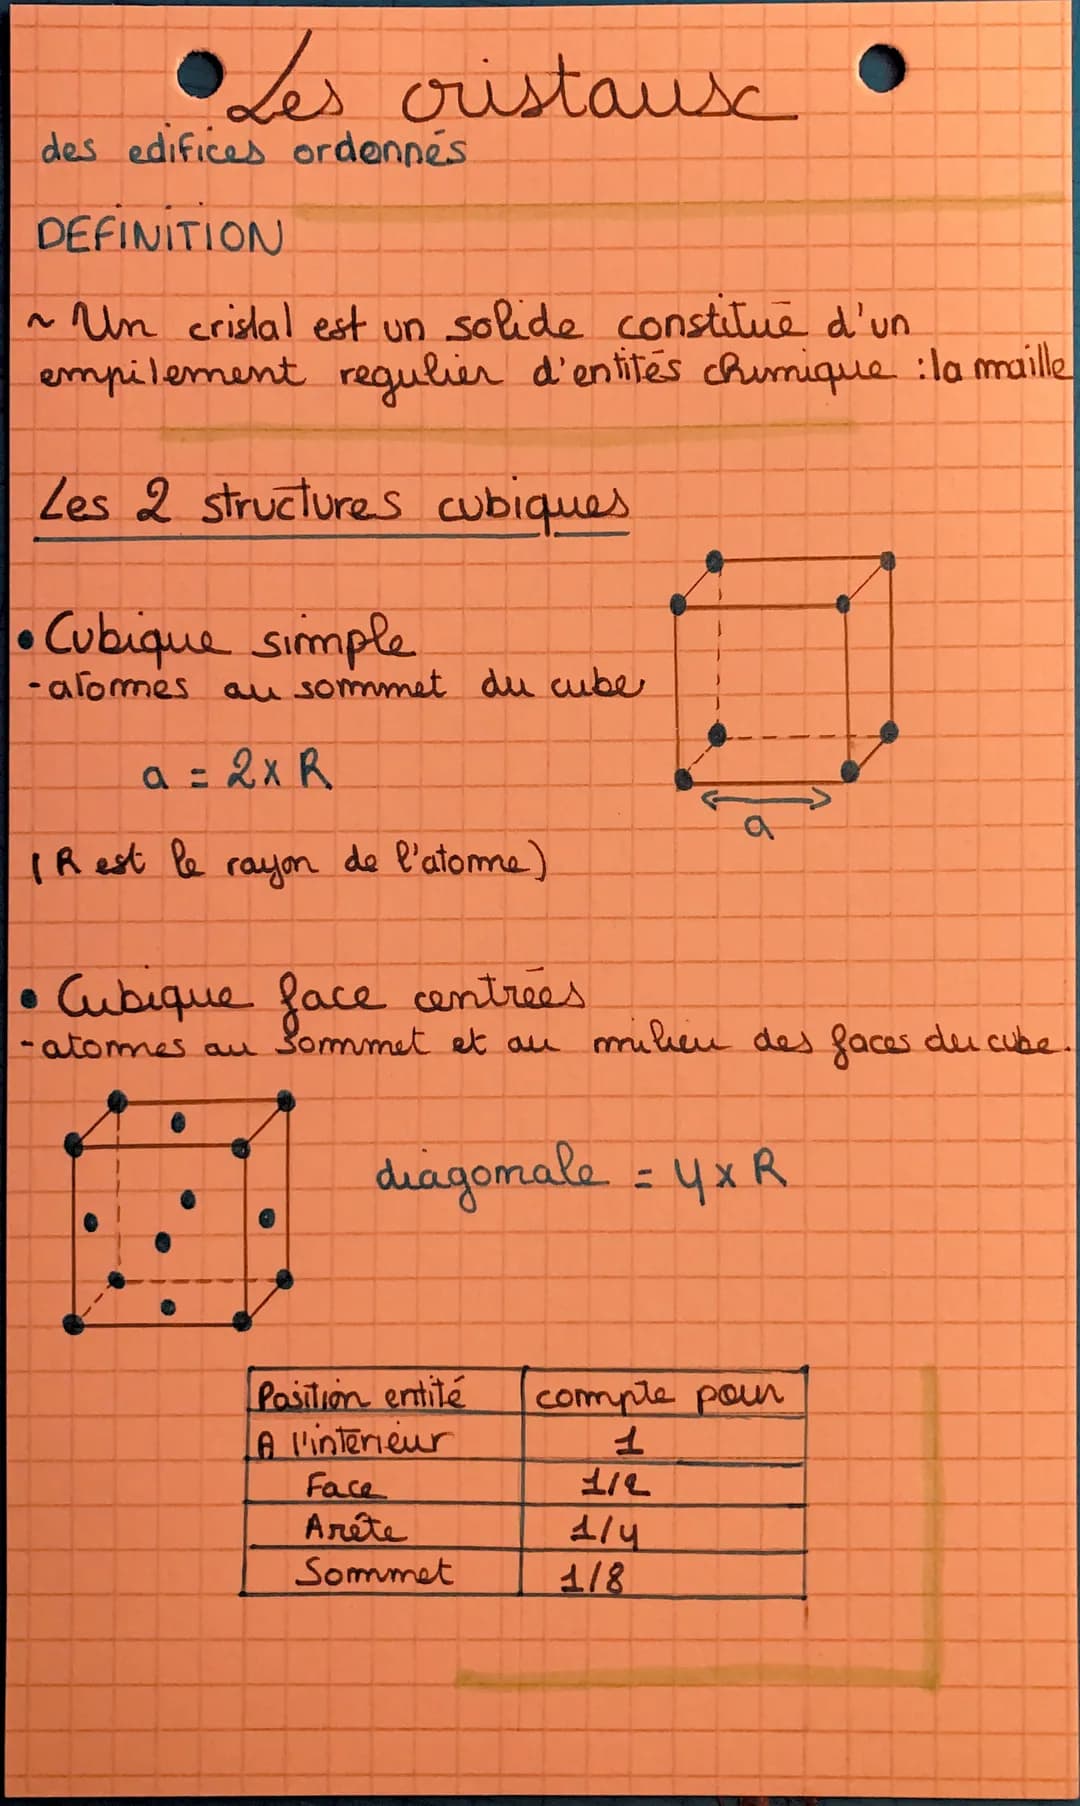 Les cristaux
des edifices ordonnés
DEFINITION
~ Un cristal est un solide constitué d'un
empilement regulier d'entités chimique : la maille
Les 2 structures cubiques
• Cubique simple
- atomes au sommet du cube
a = 2 x R
a
(R est le rayon de l'atome)
• Cubique face centrées
- atomes au sommet et au milieu des faces du cube.
diagonale = 4 x R
Position entité compte pour
A l'interieur 1
Face 1/2
Arête 1/4
Sommet 1/8